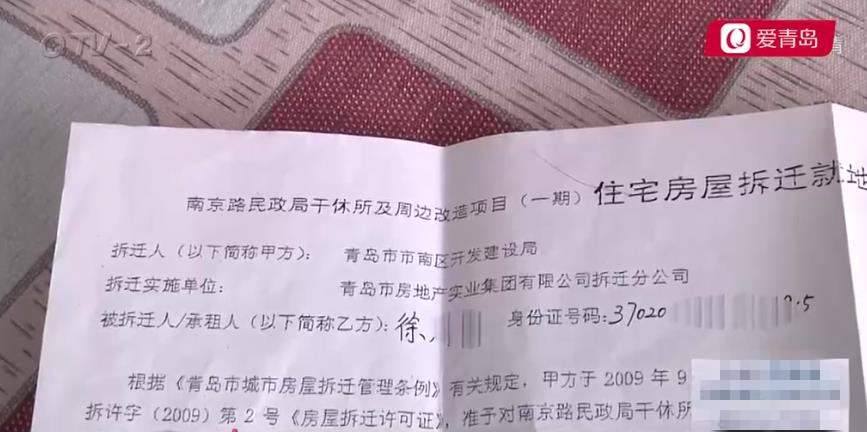 QTV-2
爱青岛
南京路民政局干休所及周边改造项目（一期）住宅房屋拆迁就地
拆迁人（以下简称甲方）： 青岛市市南区开发建设局
拆迁实施单位： 青岛市房地产实业集团有限公司拆迁分公司
被拆迁人/承租人（以下简称乙方）：徐 身份证号码：37020
根据《青岛市城市房屋拆迁管理条例》有关规定，甲方于 2009 年 9
拆许字（2009）第 2 号《房屋拆迁许可证》，准予对南京路民政局干休所